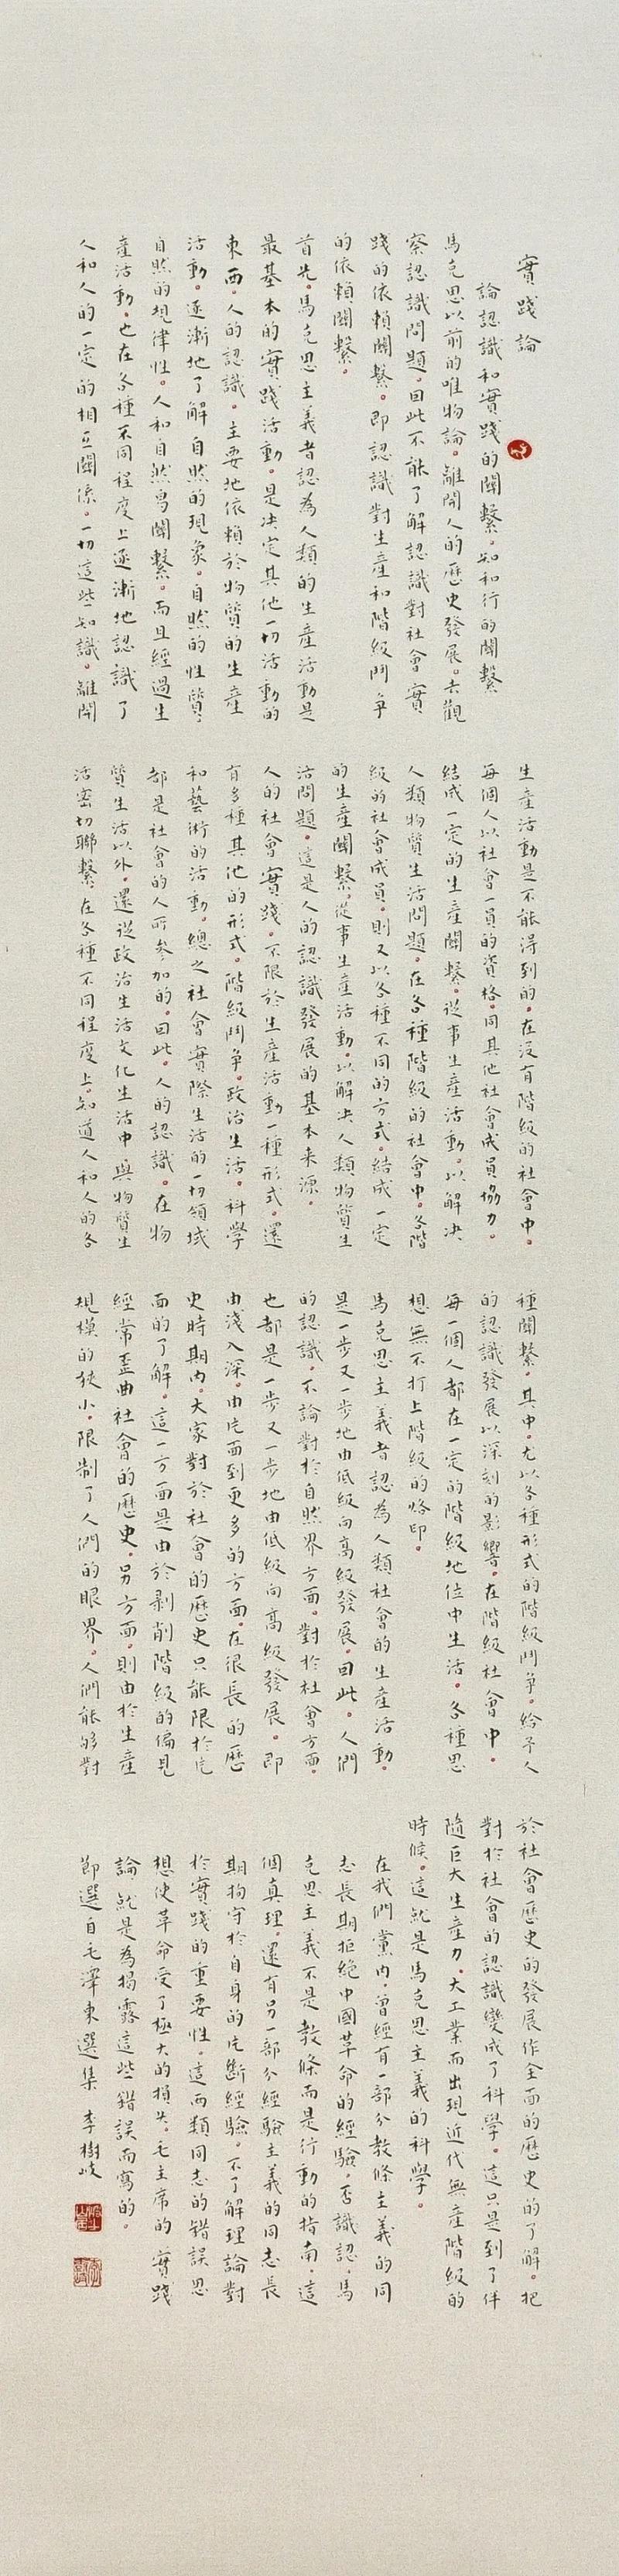 實踐論
論認識和實踐的關繫。知和行的關繫
馬克思以前的唯物論。離開人的歷史發展。去觀
察認識問題。因此不能了解認識對社會實
踐的依賴關繫。即認識對生產和階級鬥争
的依賴關繫。
首先。馬克思主義者認為人類的生產活動是
最基本的實踐活動。是决定其他一切活動的
東西。人的認識。主要地依賴於物質的生產
活動。逐漸地了解自然的現象。自然的性質。
自然的規律性。人和自然的關繫。而且經過生
產活動。也在各種不同程度上逐漸地認識了
人和人的一定的相互關係。一切這些知識。離開
生產活動是不能得到的。在沒有階級的社會中。
每個人以社會一員的資格。同其他社會成員協力。
結成一定的生產關繫。從事生產活動。以解决
人類物質生活問題。在各種階級的社會中。各階
級的社會成員。則又以各種不同的方式。結成一定
的生產關繫。從事生產活動。以解决人類物質生
活問題。這是人的認識發展的基本來源。
人的社會實踐。不限於生產活動一種形式。還
有多種其他的形式。階級鬥争。政治生活。科學
和藝術的活動。總之社會實際生活的一切領域
都是社會的人所參加的。因此。人的認識。在物
質生活以外。還從政治生活文化生活中與物質生
活密切聯繫在各種不同程度上。知道人和人的各
種關繫。其中。尤以各種形式的階級鬥争。給予人
的認識發展以深刻的影響。在階級社會中。
每一個人都在一定的階級地位中生活。各種思
想無不打上階級的烙印。
馬克思主義者認為人類社會的生產活動。
是一步又一步地由低級向高級發展。因此。人們
的認識。不論對於自然界方面。對於社會方面。
也都是一步又一步地由低級向高級發展。即
由淺入深。由片面到更多的方面。在很長的歷
史時期內。大家對於社會的歷史只能限於片
面的了解。這一方面是由於剝削階級的偏見
經常歪曲社會的歷史。另方面。則由於生產
規模的狹小。限制了人們的眼界。人們能够對
於社會歷史的發展作全面的歷史的了解。把
對於社會的認識變成了科學。這只是到了伴
隨巨大生產力。大工業而出現近代無產階級的
時候。這就是馬克思主義的科學。
在我們黨內。曾經有一部分教條主義的同
志長期拒絕中國革命的經驗。否識認。馬
克思主義不是教條而是行動的指南。這
個真理。還有另一部分經驗主義的同志長
期拘守於自身的片斷經驗。不了解理論對
於實踐的重要性。這兩類同志的錯誤思
想使革命受了極大的損失。毛主席的實踐
論就是為揭露這些錯誤而寫的。
節選自毛澤東選集 李樹岐